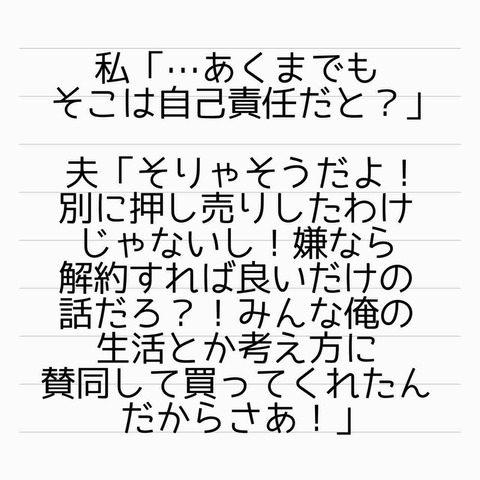 私「…あくまでも
そこは自己責任だと？」
夫「そりゃそうだよ！
別に押し売りしたわけ
じゃないし！嫌なら
解約すれば良いだけの
話だろ？！みんな俺の
生活とか考え方に
賛同して買ってくれたん
だからさあ！」